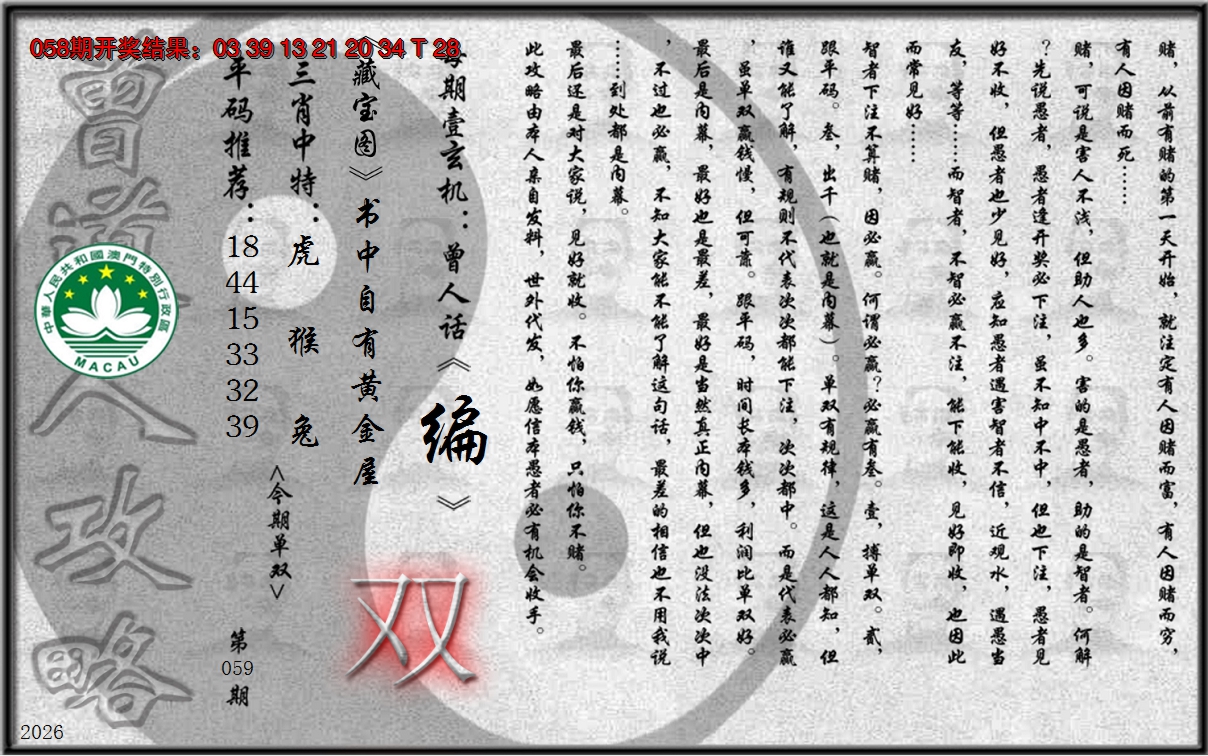 058期开奖结果：03 39 13 21 20 34 T 28
赌，从前有赌的第一天开始，就注定有人因赌而富，有人因赌而穷，
有人因赌而死……
赌，可说是害人不浅，但助人也多。害的是愚者，助的是智者。何解
？先说愚者，愚者逢开奖必下注，虽不知中不中，但也下注，愚者见
好不收，但愚者也少见好，应知愚者遇害智者不信，近观水，遇愚当
友，等等……而智者，不智必赢不注，能下能收，见好即收，也因此
而常见好……
智者下注不算赌，因必赢。何谓必赢？必赢有叁。壹，搏单双。贰，
跟平码。叁，出千（也就是内幕）。单双有规律，这是人人都知，但
谁又能了解，有规则不代表次次都能下注，次次都中。而是代表必赢
，虽单双赢钱慢，但可靠。跟平码，时间长本钱多，利润比单双好。
最后是内幕，最好也是最差，最好是当然真正内幕，但也没法次次中
，不过也必赢，不知大家能不能了解这句话，最差的相信也不用我说
……到处都是内幕。
最后还是对大家说，见好就收。不怕你赢钱，只怕你不赌。
此攻略由本人亲自发料，世外代发，如愿信本愚者必有机会收手。
每期壹玄机：曾人话《编》
《藏宝图》书中自有黄金屋
双
三肖中特：虎 猴 兔
<今期单双>
平码推荐：18 44 15 33 32 39
第059期
曾道人攻略
中華人民共和國澳門特別行政區
MACAU
2026